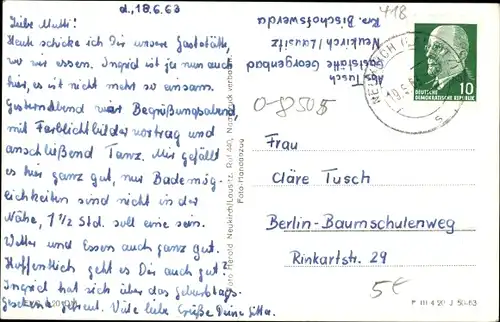 d., 18.6.63
Liebe Mutti!
Heute schicke ich Dir unsere Gaststätte,
wo wir essen. Ingrid ist ja nun auch
hier, es ist nicht mehr so einsam.
Gesternabend war Begrüßungsabend,
mit Farblichtbildervortrag und
anschließend Tanz. Mir gefällt
es hier ganz gut, nur Bademög-
lichkeiten sind nicht in der
Nähe, 1 1/2 Std. soll eine sein.
Wetter und Essen auch ganz gut.
Hoffentlich geht es Dir auch gut?
Ingrid hat sich über das Geburtstags-
Geschenk gefreut. Viele liebe Grüße Deine
Foto Herold Neukirch/Lausitz, Ruf 440, Nachdruck verboten
Foto-Handabzug
Abs. Tusch
Gaststätte Georgenbad
Neukirch/Lausitz
Krs. Bischofswerda
418
0-8505
NEUKIRCH
18.6.63
10
DEUTSCHE
DEMOKRATISCHE REPUBLIK
Frau
Cläre Tusch
Berlin-Baumschulenweg
Rinkartstr. 29
5€
P III 4 20 J 50-63